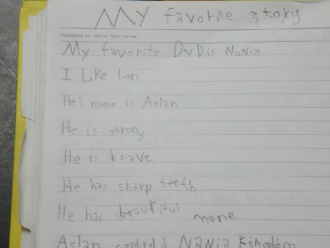 My favorite story
My favorite DVDis NaNia
I Like lion
He's name is Aslan
He is strong
He is brave
He has sharp teeth
He has beautiful mane
Aslan NaNia Kingdom